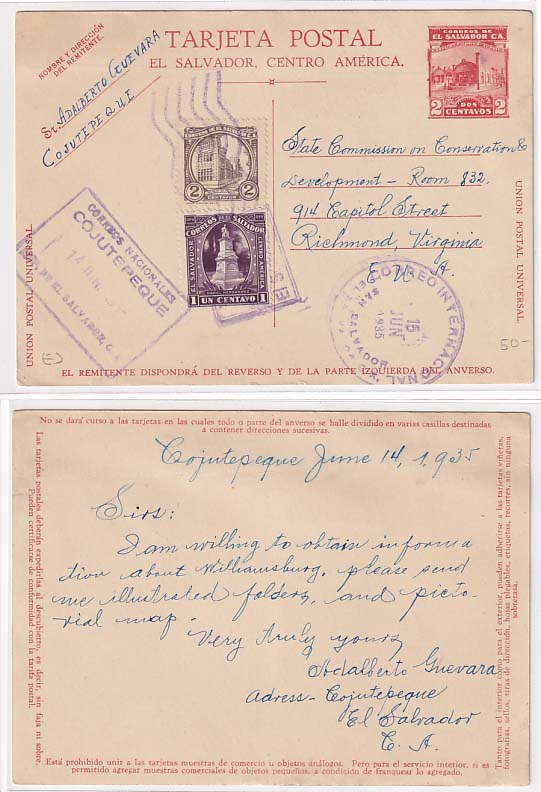 NOMBRE Y DIRECCIÓN
DEL REMITENTE.
Sr. ADALBERTO GUEVARA
COJUTEPEQUE
TARJETA POSTAL
EL SALVADOR, CENTRO AMÉRICA.
CORREOS DE
EL SALVADOR C.A.
2 DOS CENTAVOS 2
2 2
CORREOS DE EL SALVADOR
EL SALVADOR
CENTRO AMERICA
1 UN CENTAVO 1
State Commission on Conservation &
Development - Room 832.
914 Capitol Street
Richmond, Virginia
E U A.
CORREOS NACIONALES
COJUTEPEQUE
14 JUN
DE EL SALVADOR, C.A.
CORREO INTERNACIONAL
15
JUN
1935
SAN SALVADOR
UNION POSTAL UNIVERSAL.
UNION POSTAL UNIVERSAL.
50-
EL REMITENTE DISPONDRÁ DEL REVERSO Y DE LA PARTE IZQUIERDA DEL ANVERSO.
No se dará curso a las tarjetas en las cuales todo o parte del anverso se halle dividido en varias casillas destinadas
a contener direcciones sucesivas.
Las tarjetas postales deberán expedirlas al descubierto, es decir, sin faja ni sobre.
Pueden certificarse de conformidad con la tarifa postal.
Cojutepeque June 14, 1935
Sirs:
I am willing to obtain informa
tion about Williamsburg, please send
me illustrated folders, and picto-
rial map.
Very truly yours
Adalberto Guevara
Adress-Cojutepeque
El Salvador
C. A.
Tanto para el interior como para el exterior, pueden adherirse a las tarjetas viñetas,
fotografías, sellos, tiras de dirección, hojas plegables, etiquetas, recortes, sin ninguna
sobretasa.
Está prohibido unir a las tarjetas muestras de comercio u objetos análogos. Pero para el servicio interior, si es
permitido agregar muestras comerciales de objetos pequeños, a condición de franquear lo agregado.